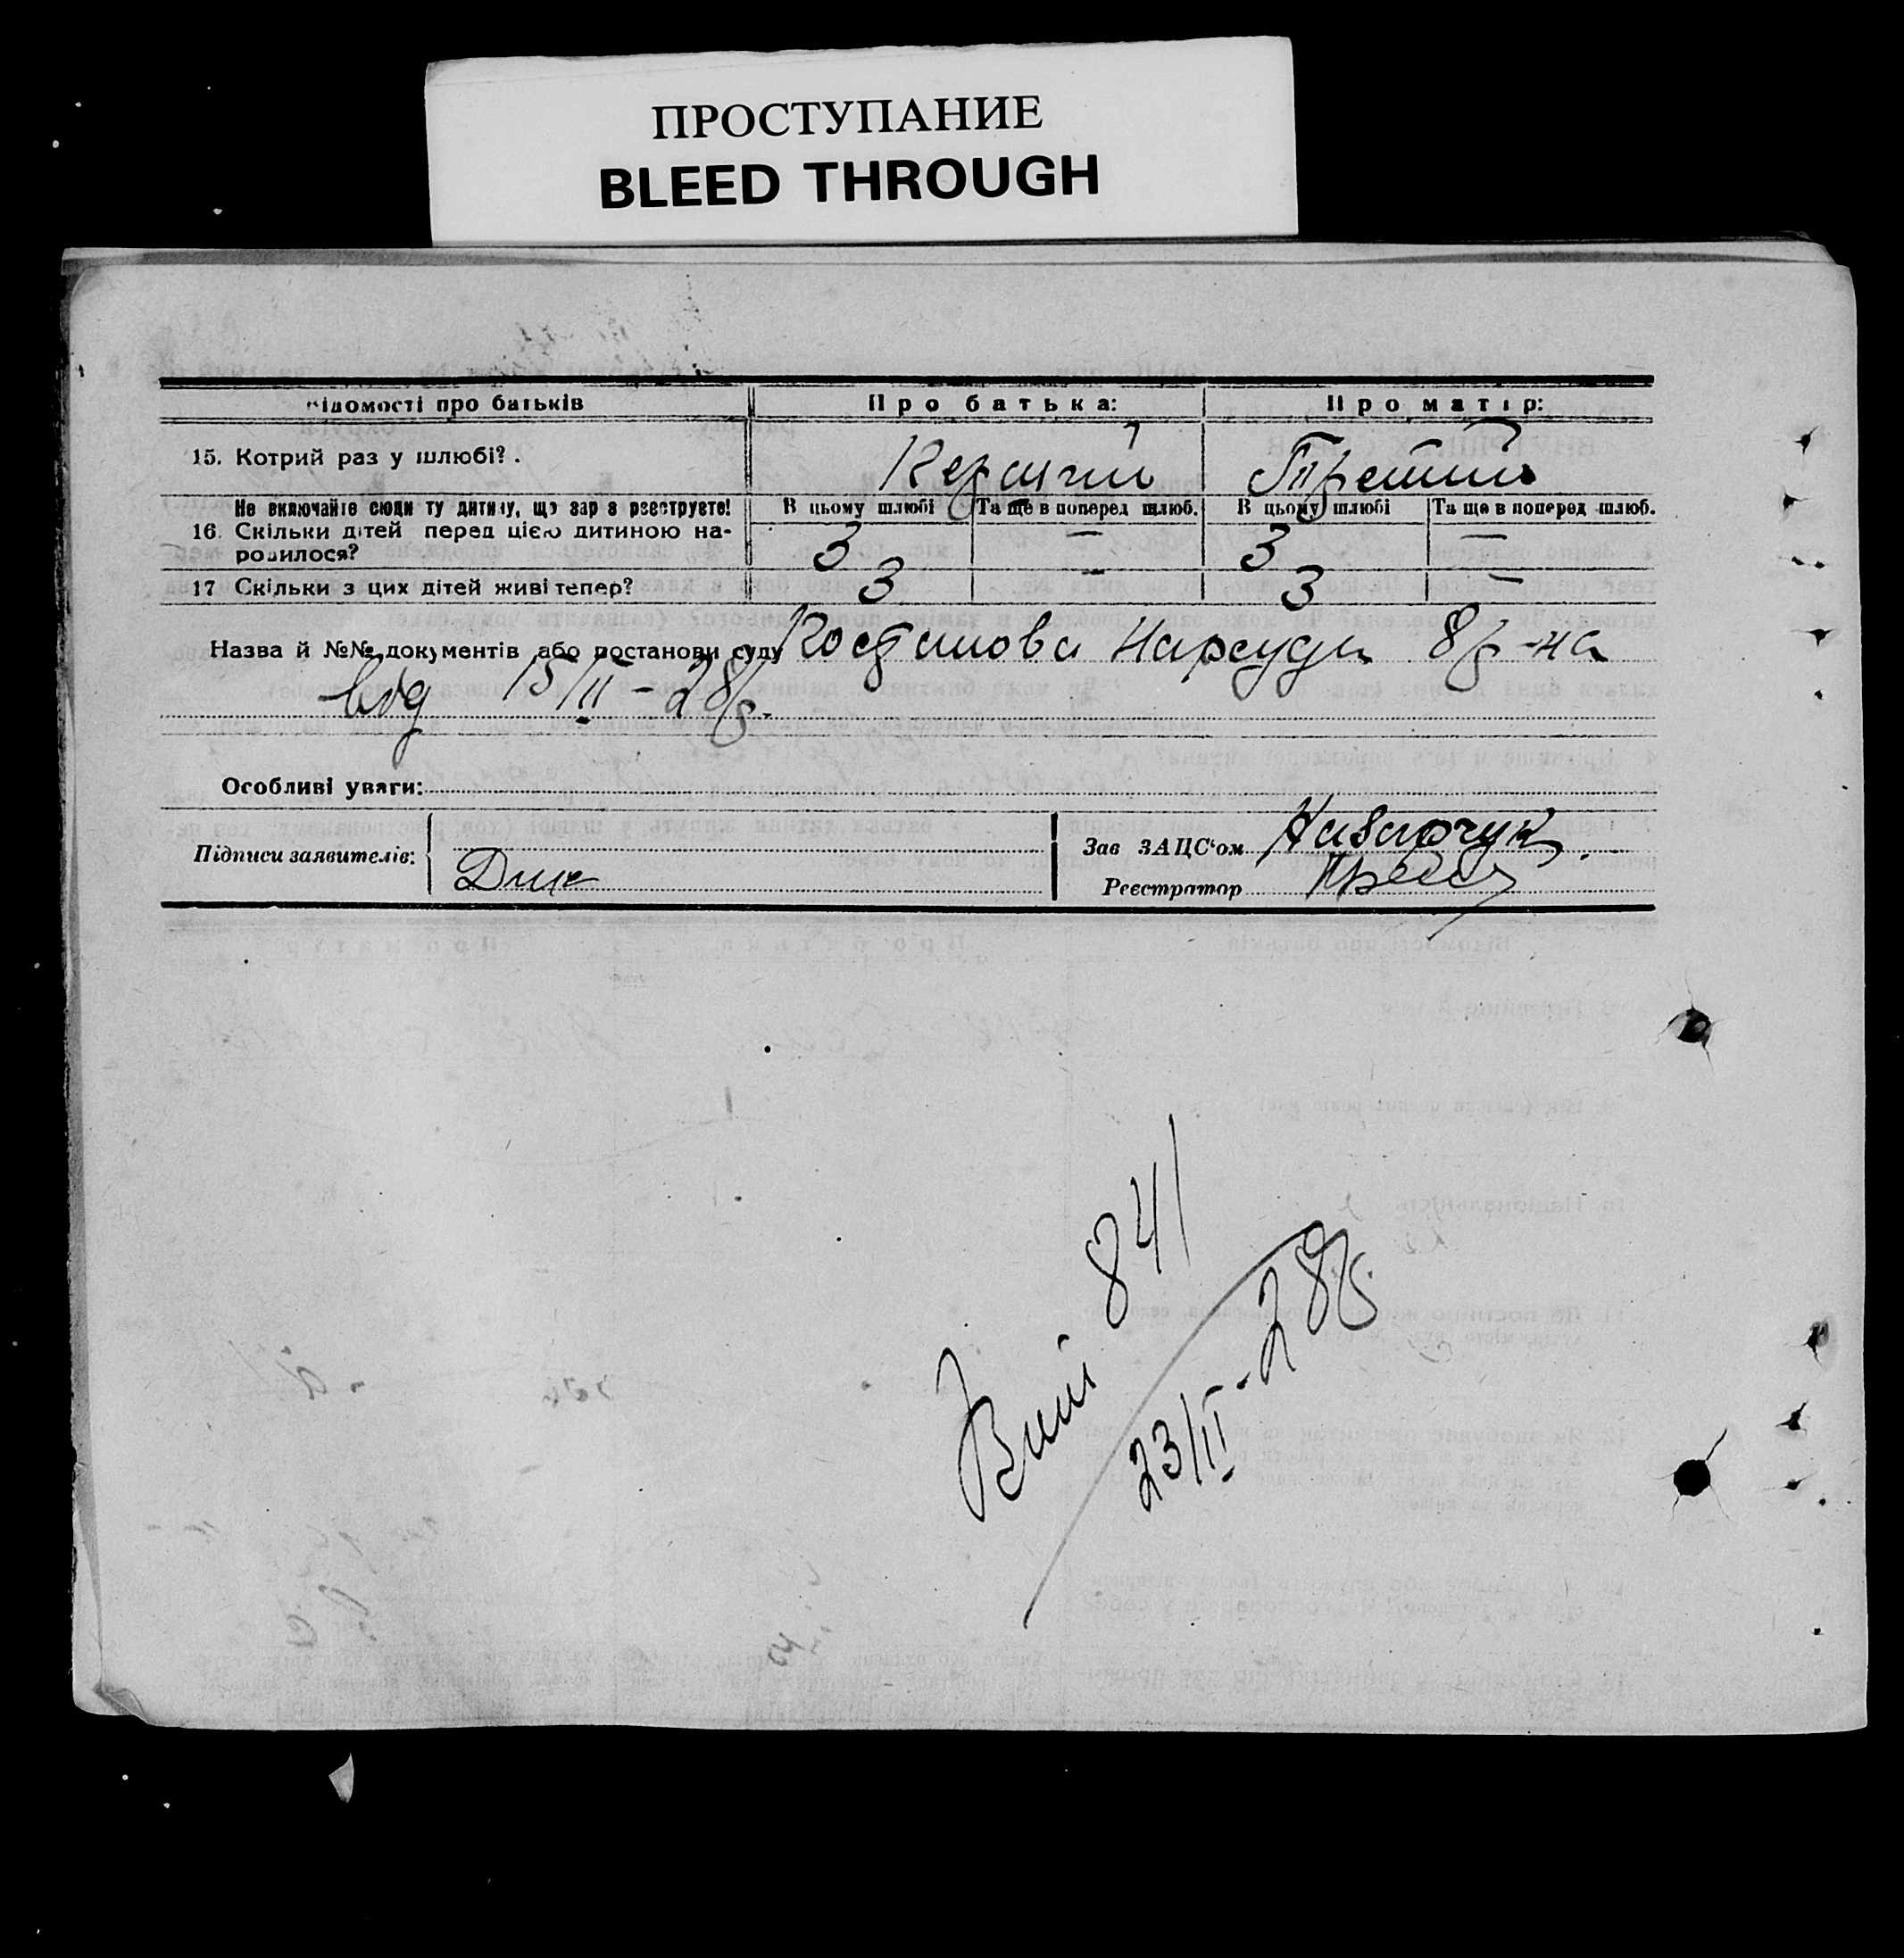 ПРОСТУПАНИЕ
BLEED THROUGH
Відомості про батьків
Про батька:
Про матір:
15. Котрий раз у шлюбі?
Третий
Не включайте сюди ту дитину, що зараз реєструєте!
В цьому шлюбі
Та ще в поперед. шлюб.
В цьому шлюбі
Та ще в поперед. шлюб.
16. Скільки дітей перед цією дитиною на-
родилося?
3 — 3 —
17 Скільки з цих дітей живі тепер?
3 — 3 —
Назва й №№ документів або постанови суду Постанова Нарсуду 8 р-на
від 15/II-28р.
Особливі уваги:
Підписи заявителів:
Зав ЗАЦС'ом
Реєстратор
841
23/II-28р.